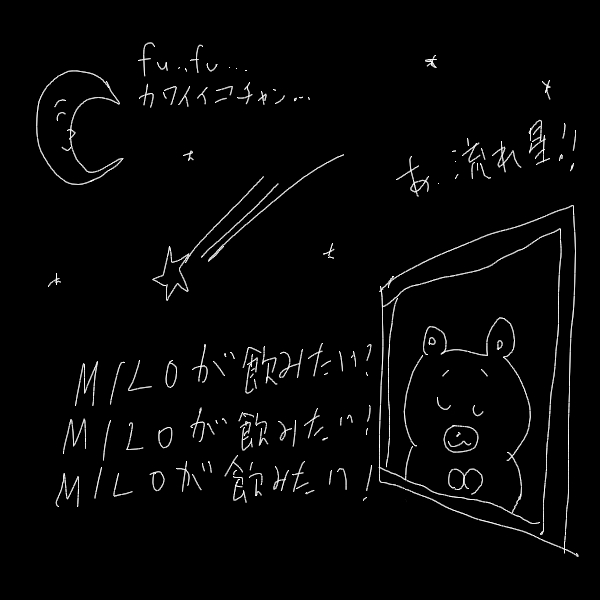 fu..fu...
カワイイコチャン...
あ、流れ星!!
MILOが飲みたい!
MILOが飲みたい!
MILOが飲みたい!